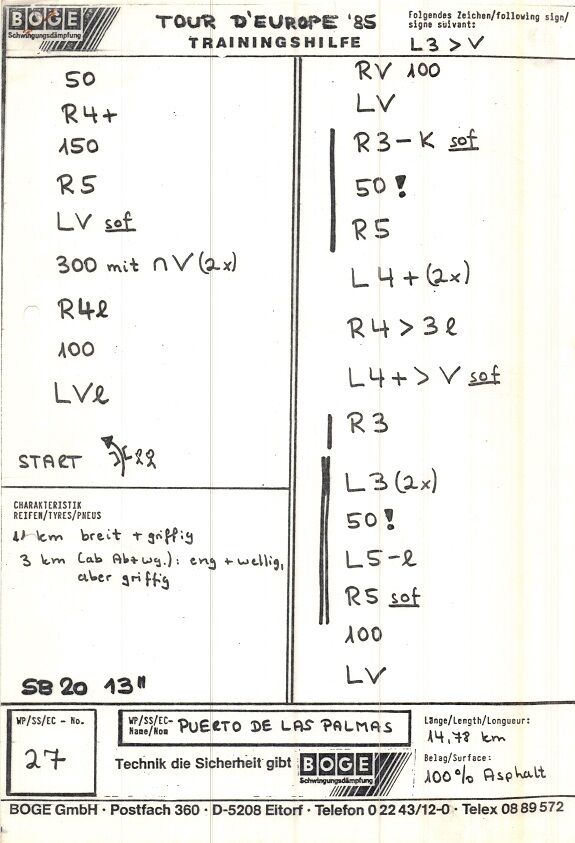 BOGE
Schwingungsdämpfung
TOUR D'EUROPE '85
TRAININGSHILFE
Folgendes Zeichen/following sign/
signe suivant:
L3 > V
50
R4+
150
R5
LV sof
300 mit ∩V (2x)
R4l
100
LVl
START
RV 100
LV
R3-K sof
50!
R5
L4+ (2x)
R4 > 3l
L4+ > V sof
R3
L3 (2x)
50!
L5-l
R5 sof
100
LV
CHARAKTERISTIK
REIFEN/TYRES/PNEUS
11 km breit + griffig
3 km (ab Abzwg.): eng + wellig,
aber griffig
SB 20 13"
WP/SS/EC - No.
27
WP/SS/EC-
Name/Nom PUERTO DE LAS PALMAS
Technik die Sicherheit gibt
BOGE
Schwingungsdämpfung
Länge/Length/Longueur:
14,78 km
Belag/Surface:
100% Asphalt
BOGE GmbH · Postfach 360 · D-5208 Eitorf · Telefon 0 22 43/12-0 · Telex 08 89 572